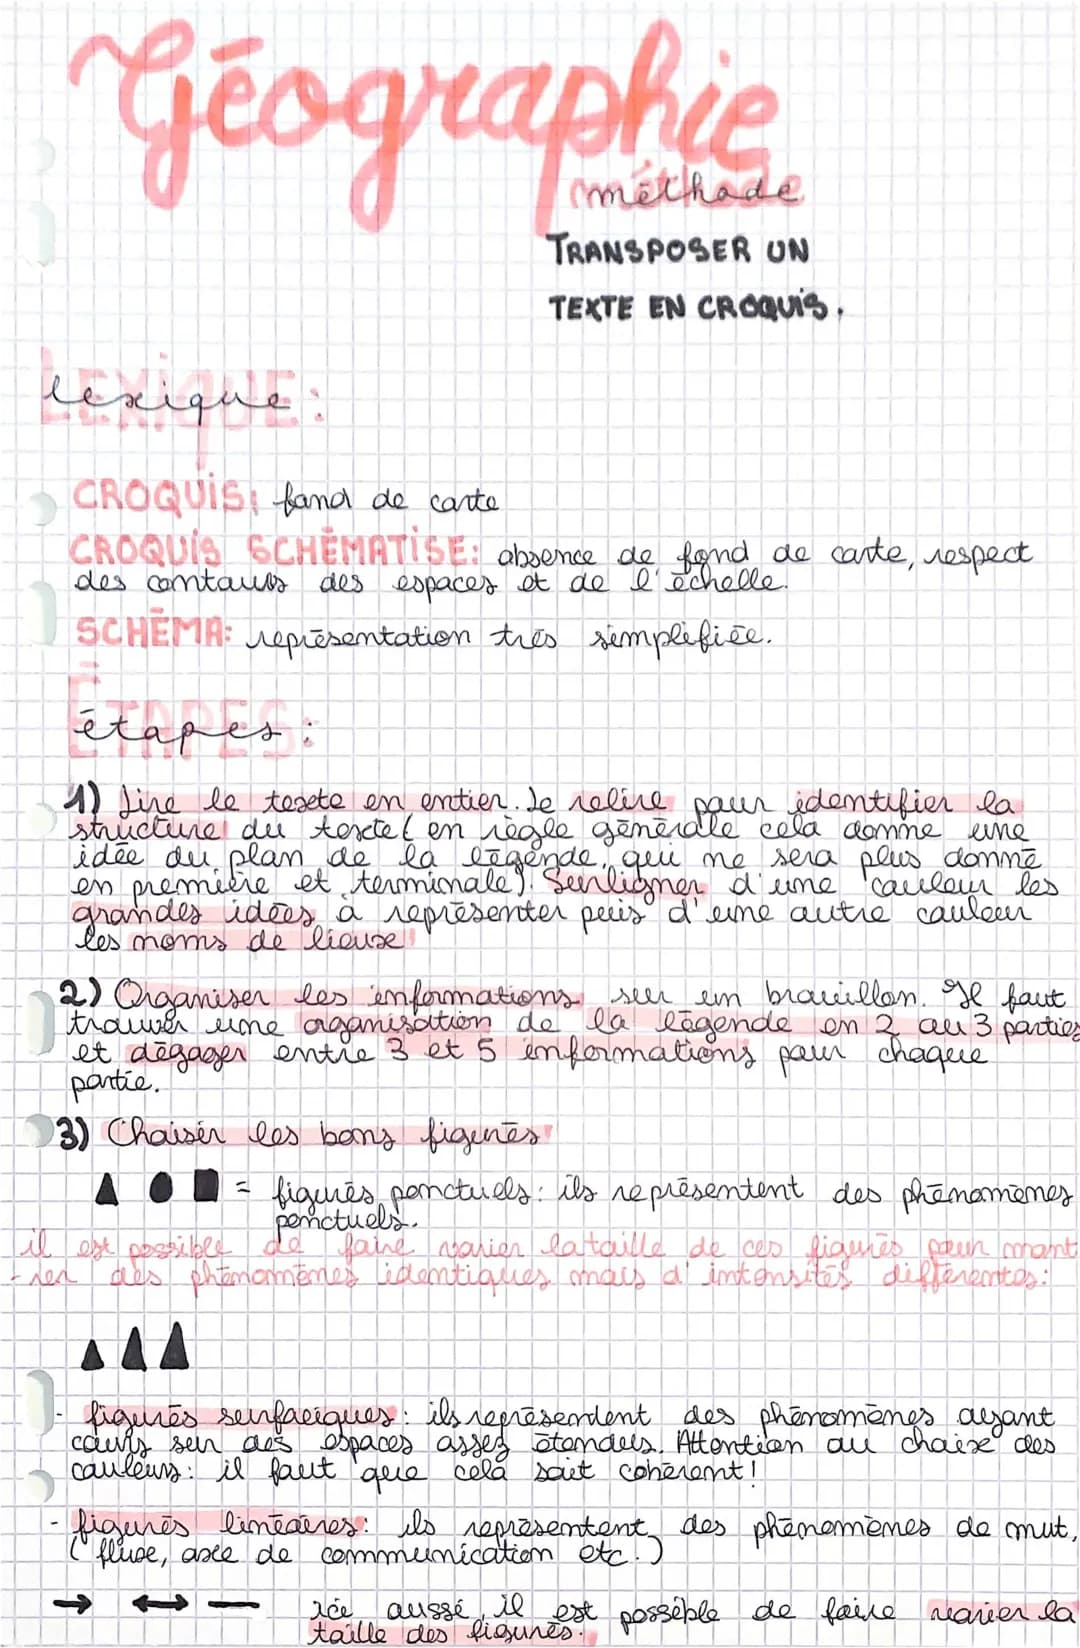 Géographie
méthode
TRANSPOSER UN
TEXTE EN CROQUIS.
lexique :
CROQUIS: fond de carte
CROQUIS SCHÉMATISE: absence de fond de carte, respect
des contours des espaces et de l'échelle.
SCHÉMA: représentation très simplifiée.
étapes :
1) Lire le texte en entier. Le relire pour identifier la
structure du texte ( en règle générale cela donne une
idée du plan de la légende, qui ne sera plus donné
en première et terminale). Surligner d'une couleur les
grandes idées à représenter puis d'une autre couleur
les noms de lieux
2) Organiser les informations sur un brouillon. Il faut
trouver une organisation de la légende en 2 ou 3 parties
et dégager entre 3 et 5 informations pour chaque
partie.
3) Choisir les bons figurés
▲ ● ■ = figurés ponctuels : ils représentent des phénomènes
ponctuels.
il est possible de faire varier la taille de ces figurés pour mont
-rer des phénomènes identiques mais d'intensités différentes :
▲ ▲ ▲
- figurés surfaciques : ils représentent des phénomènes ayant
cours sur des espaces assez étendus. Attention au choix des
couleurs : il faut que cela soit cohérent !
- figurés linéaires : ils représentent des phénomènes de mut,
( flux, axe de communication etc. )
→ ↔ — ici aussi, il est possible de faire varier la
taille des figurés.